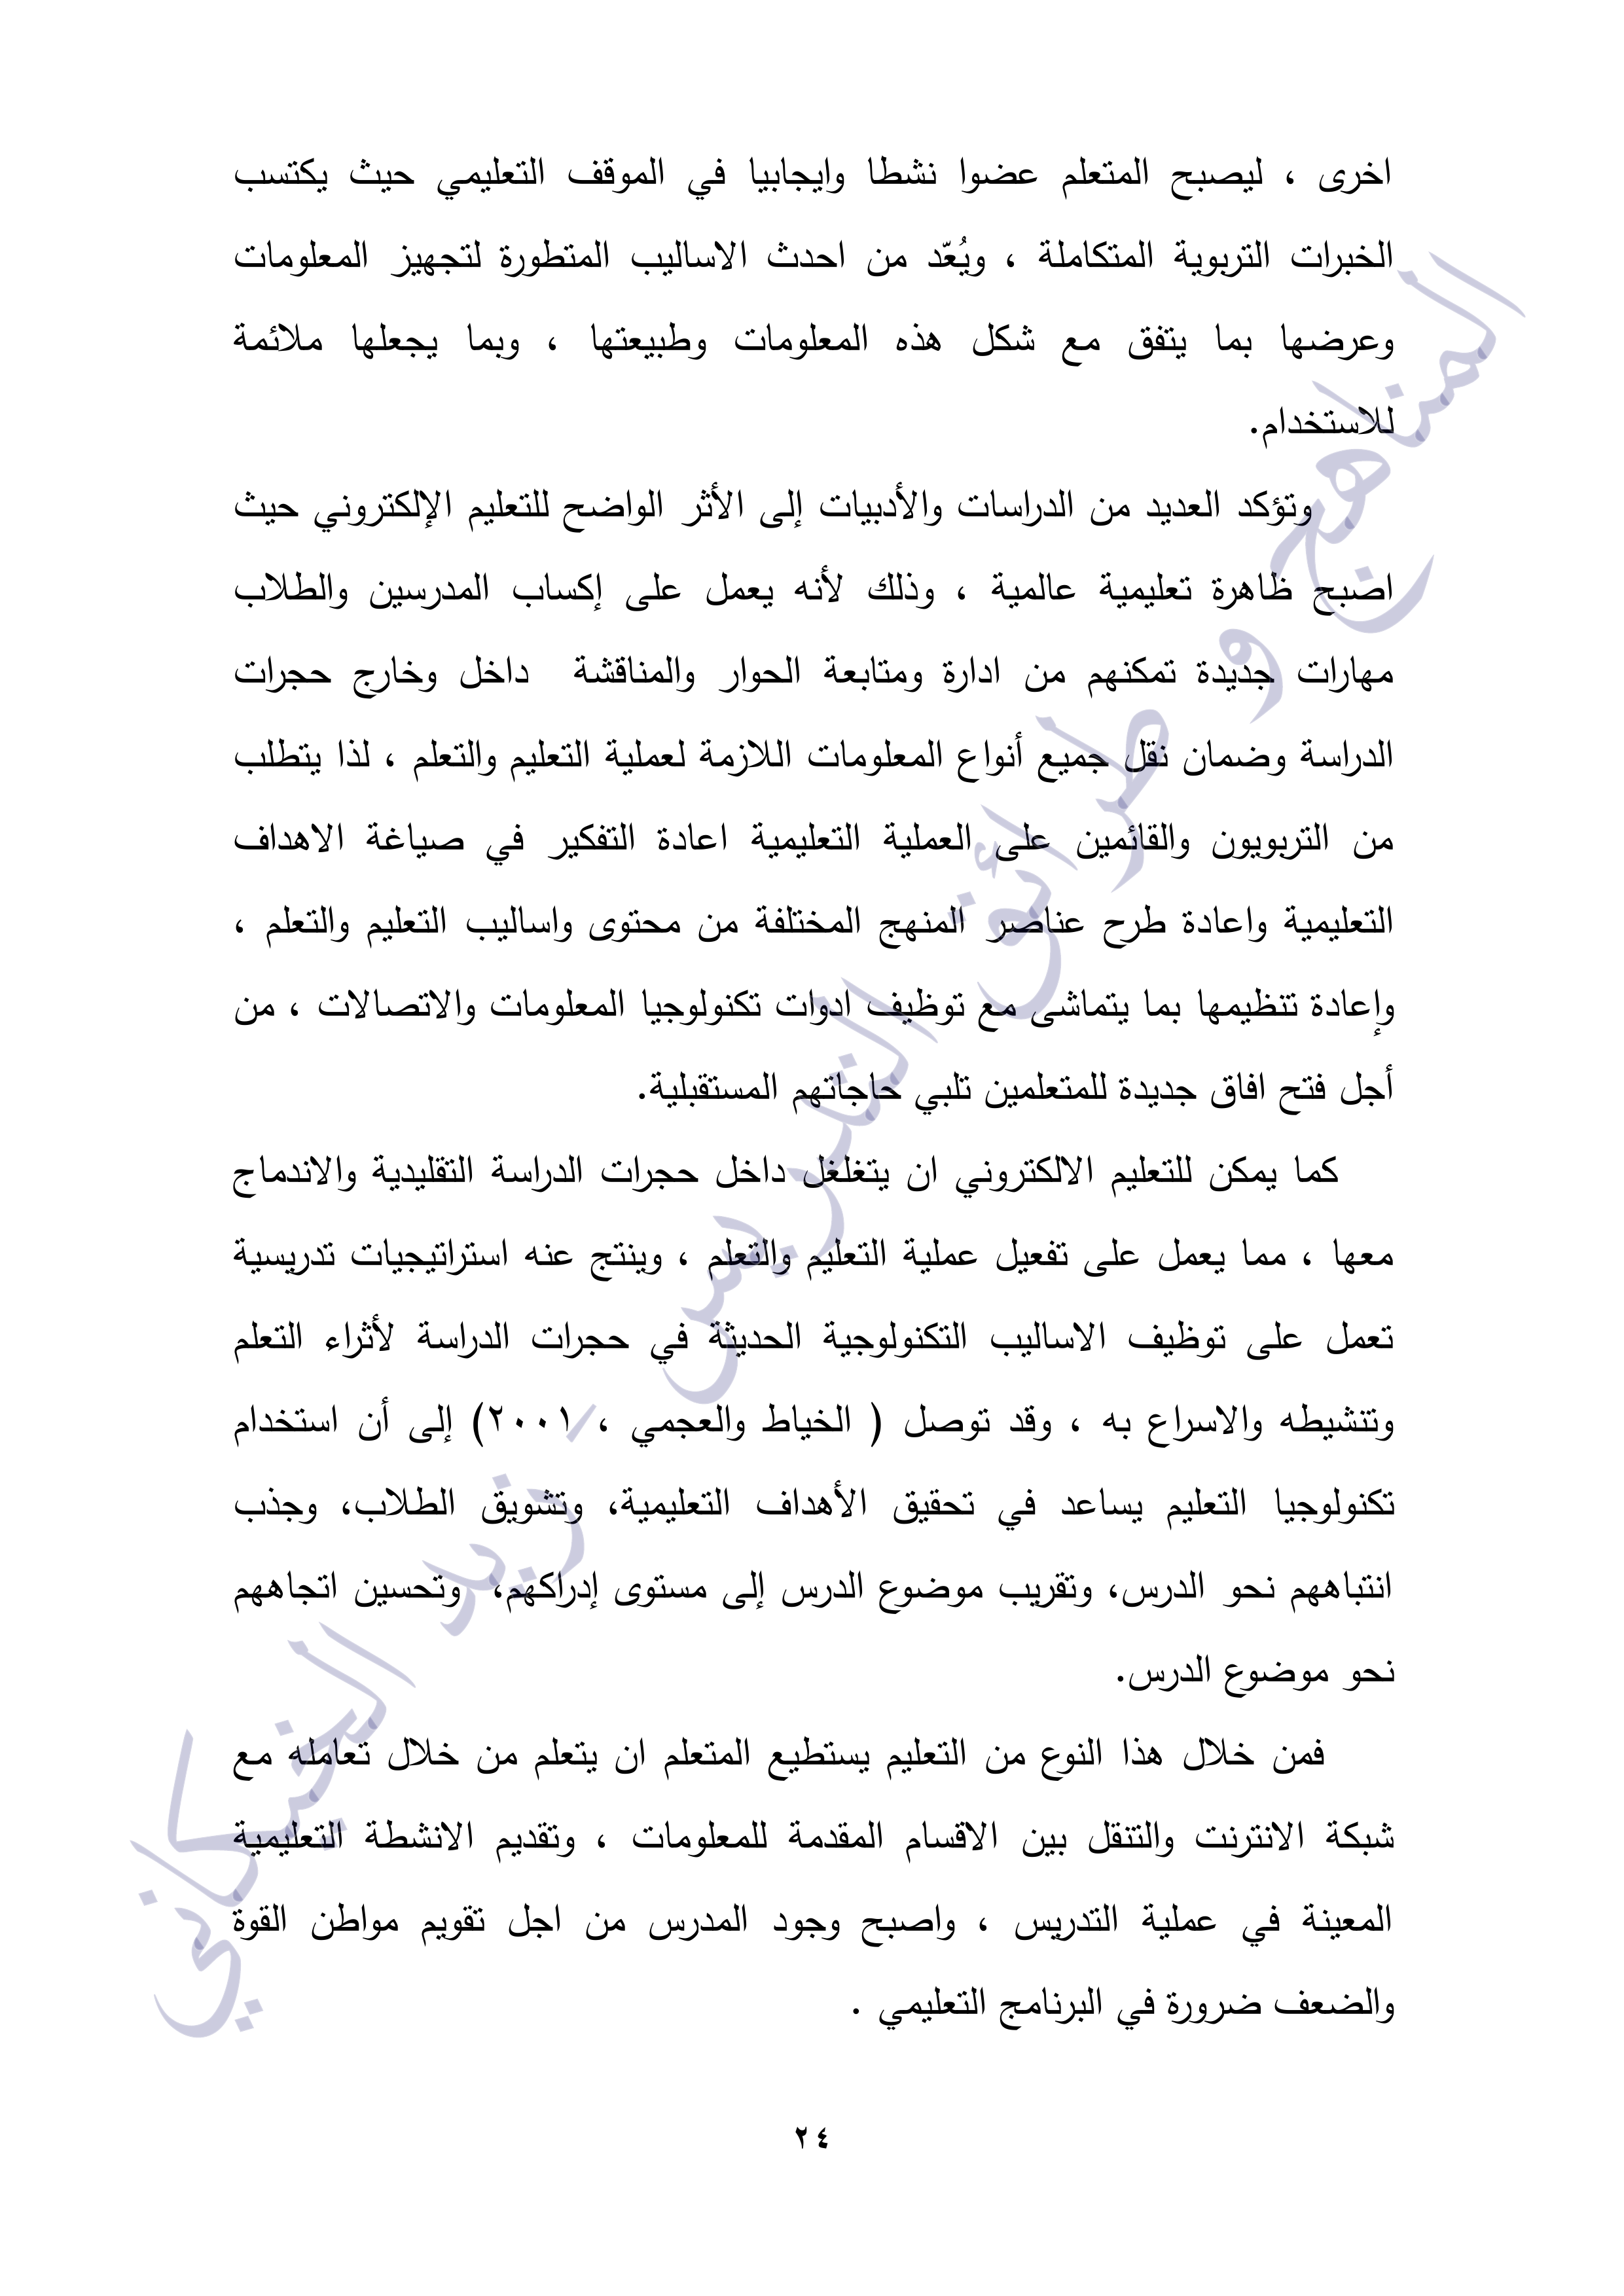 اخرى ، ليصبح المتعلم عضوا نشطا وايجابيا في الموقف التعليمي حيث يكتسب
الخبرات التربوية المتكاملة ، ويُعّد من احدث الاساليب المتطورة لتجهيز المعلومات
وعرضها بما يتفق مع شكل هذه المعلومات وطبيعتها ، وبما يجعلها ملائمة
للاستخدام.
وتؤكد العديد من الدراسات والأدبيات إلى الأثر الواضح للتعليم الإلكتروني حيث
اصبح ظاهرة تعليمية عالمية ، وذلك لأنه يعمل على إكساب المدرسين والطلاب
مهارات جديدة تمكنهم من ادارة ومتابعة الحوار والمناقشة داخل وخارج حجرات
الدراسة وضمان نقل جميع أنواع المعلومات اللازمة لعملية التعليم والتعلم ، لذا يتطلب
من التربويون والقائمين على العملية التعليمية اعادة التفكير في صياغة الاهداف
التعليمية واعادة طرح عناصر المنهج المختلفة من محتوى واساليب التعليم والتعلم ،
وإعادة تنظيمها بما يتماشى مع توظيف ادوات تكنولوجيا المعلومات والاتصالات ، من
أجل فتح افاق جديدة للمتعلمين تلبي حاجاتهم المستقبلية.
كما يمكن للتعليم الالكتروني ان يتغلغل داخل حجرات الدراسة التقليدية والاندماج
معها ، مما يعمل على تفعيل عملية التعليم والتعلم ، وينتج عنه استراتيجيات تدريسية
تعمل على توظيف الاساليب التكنولوجية الحديثة في حجرات الدراسة لأثراء التعلم
وتنشيطه والاسراع به ، وقد توصل ( الخياط والعجمي ، ٢٠٠١) إلى أن استخدام
تكنولوجيا التعليم يساعد في تحقيق الأهداف التعليمية، وتشويق الطلاب، وجذب
انتباههم نحو الدرس، وتقريب موضوع الدرس إلى مستوى إدراكهم، وتحسين اتجاههم
نحو موضوع الدرس.
فمن خلال هذا النوع من التعليم يستطيع المتعلم ان يتعلم من خلال تعامله مع
شبكة الانترنت والتنقل بين الاقسام المقدمة للمعلومات ، وتقديم الانشطة التعليمية
المعينة في عملية التدريس ، واصبح وجود المدرس من اجل تقويم مواطن القوة
والضعف ضرورة في البرنامج التعليمي .
٢٤
المناهج و طرائق التدريس - زيد الخيكاني